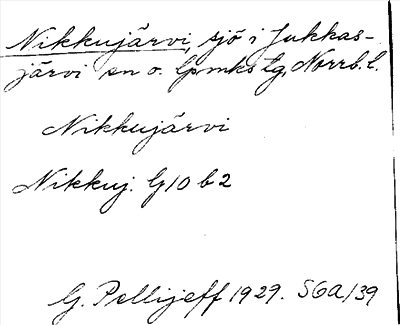 Nikkujärvi, sjö i Jukkas-
järvi sn o. lpmks lg, Norrb. l.
Nikkujärvi
Nikkuj. G10 b2
G. Pellijeff 1929. SGA/39